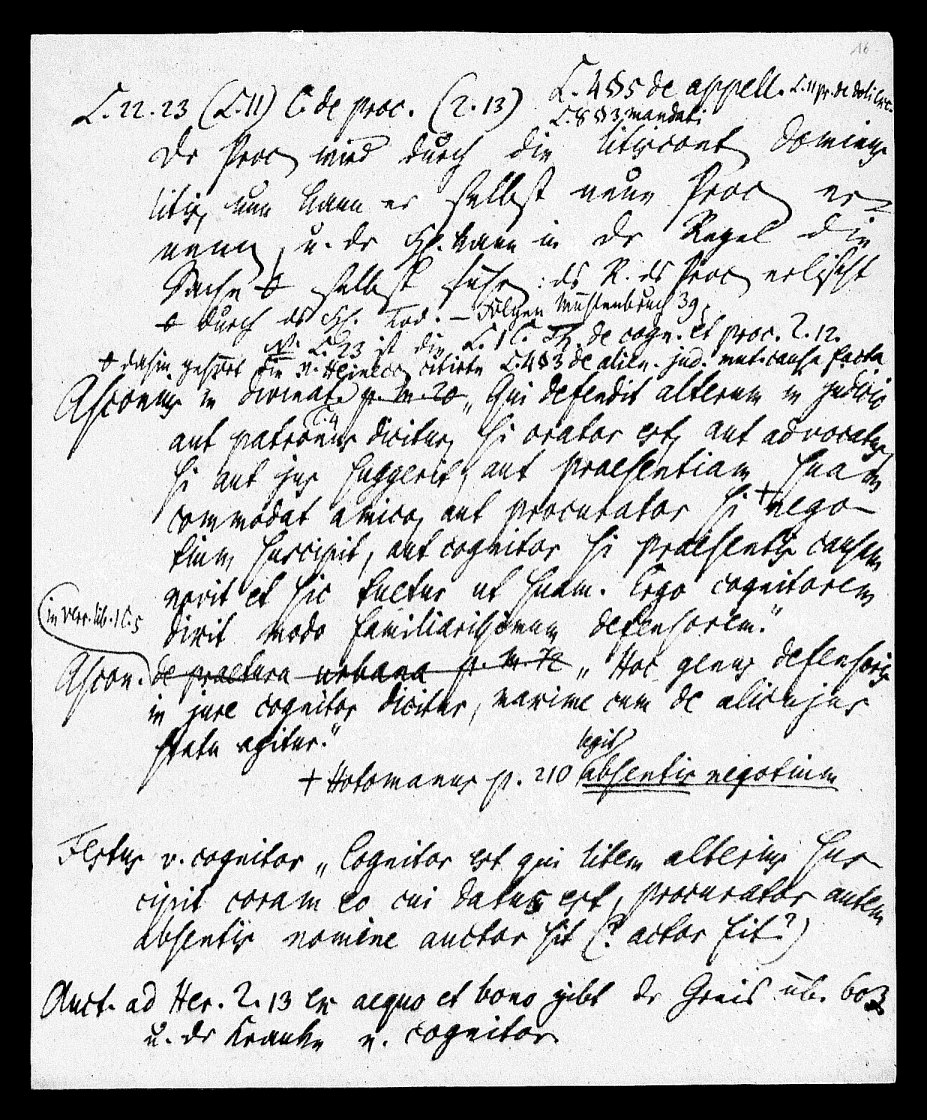 16
L. 22. 23 (L. 11) C. de proc. (2. 13) L. 4 § 5 de appell. L. 11 pr. de doli exc.
L. 8 § 3 mandati
Dr Proc wird durch die litiscont dominus
litis, nun kann er selbst neue Proc er-
nennen, u. dr kann in dr Regel die
Sache selbst führ : ds R. ds Proc erlischt
+ durch ds Tod. — Folgen Mühlenbruch 39.
L. 23 ist die L. 1 C. Th. de cogn. et proc. 2. 12.
+ dahin gehört die v. Heinecc citirte L. 4 § 3 de alien. jud. mut. causa facta
Asconius in divinat. p. m. 20 „Qui defendit alterum in judicio
C. 4
aut patronus dicitur, si orator est, aut advocatus,
si aut jus suggerit, aut praesentiam suam
commodat amico, aut procurator si + nego-
tium suscipit, aut cognitor si praesentis causam
novit et sic tuetur ut suam. Ergo cognitorem
dixit modo familiarissimum defensorem."
in Verr. lib. 1 C. 5
Ascon. de praetura urbana p. m 72 „Hoc genus defensoris
in jure cognitor dicitur, maxime cum de alicujus
statu agitur."
legit
+ Hotomanus p. 210 absentis negotium
Festus v. cognitor „Cognitor est qui litem alterius sus-
cipit coram eo cui datus est, procurator autem
absentis nomine auctor fit (? actor fit?)
Auct. ad Her. 2. 13 ex aequo et bono gibt dr Greis üb. 60 J
u. dr Kranke e. cognitor